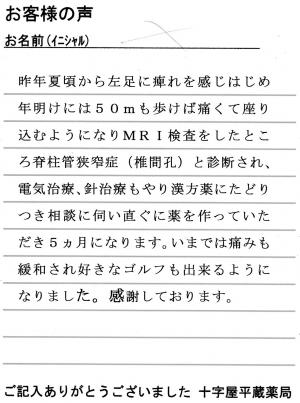 お客様の声
お名前(イニシャル)
昨年夏頃から左足に痺れを感じはじめ
年明けには５０ｍも歩けば痛くて座り
込むようになりＭＲＩ検査をしたとこ
ろ脊柱管狭窄症（椎間孔）と診断され、
電気治療、針治療もやり漢方薬にたどり
つき相談に伺い直ぐに薬を作っていた
だき５ヵ月になります。いまでは痛みも
緩和され好きなゴルフも出来るように
なりました。感謝しております。
ご記入ありがとうございました 十字屋平蔵薬局